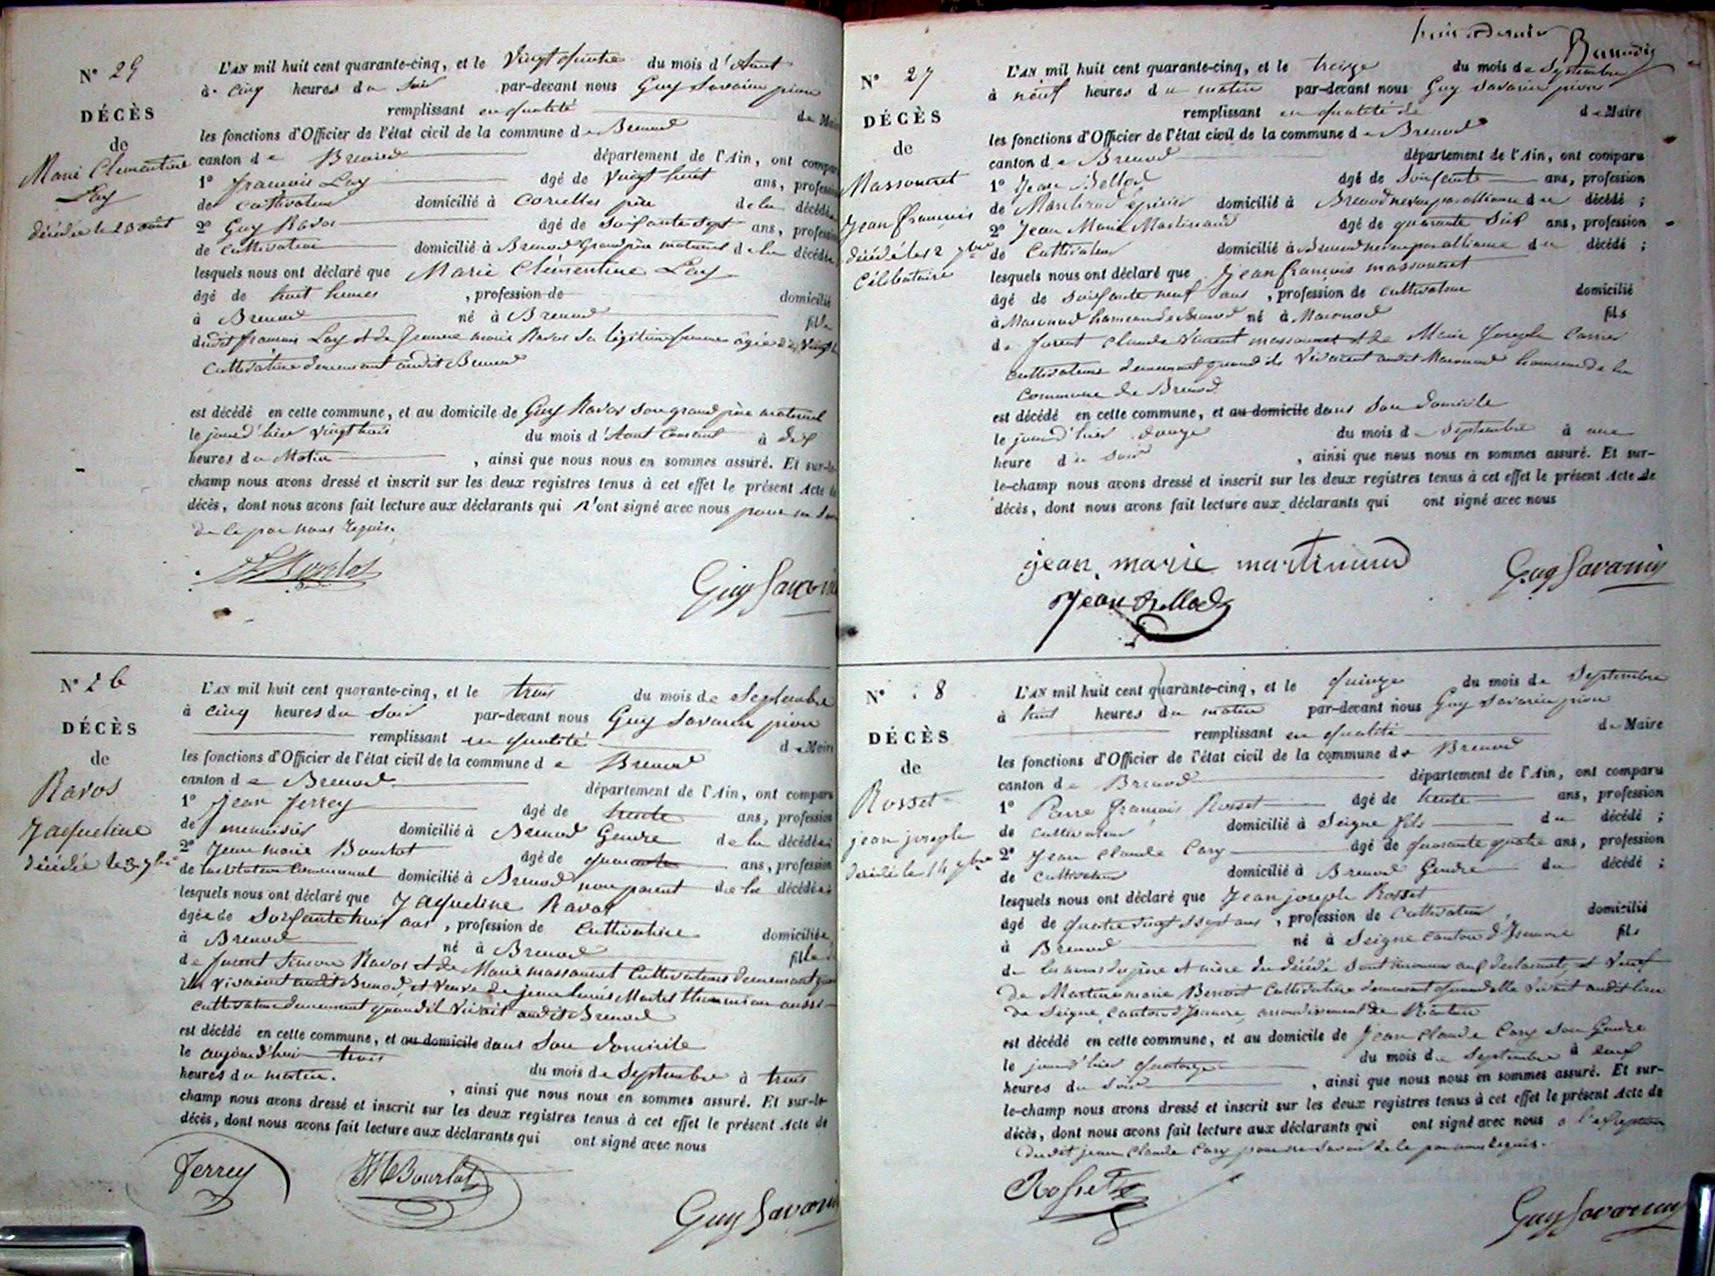 N° 25
DÉCÈS
de
Marie Clémentine
Lay
décédée le 23 août
L'AN mil huit cent quarante-cinq, et le vingt quatre du mois d'Aout
à cinq heures du soir par-devant nous Guy Savarin pion
remplissant en qualité de Maire
les fonctions d'Officier de l'état civil de la commune de Brenod
canton de Brenod département de l'Ain, ont comparu
1° francois Lay âgé de vingt huit ans, profession
de cultivateur domicilié à Corcelles père de la décédée
2° Guy Ravos âgé de soixante sept ans, profession
de cultivateur domicilié à Brenod Grand père maternel de la décédée
lesquels nous ont déclaré que Marie Clémentine Lay
âgé de huit heures, profession de domicilié
à Brenod né à Brenod fille
dudit francois Lay et de Jeanne marie Ravos sa légitime femme âgée de vingt
cultivatrice demeurant audit Brenod
est décédé en cette commune, et au domicile de Guy Ravos son grand père maternel
le jour d'hier vingt trois du mois d'Aout courant à dix
heures du Matin, ainsi que nous nous en sommes assuré. Et sur-le-
champ nous avons dressé et inscrit sur les deux registres tenus à cet effet le présent Acte de
décès, dont nous avons fait lecture aux déclarants qui n'ont signé avec nous pour ne
de ce par nous requis.
Guy Savarin
N° 26
DÉCÈS
de
Ravos
Jaqueline
décédée le 3 7bre
L'AN mil huit cent quarante-cinq, et le trois du mois de Septembre
à cinq heures du soir par-devant nous Guy Savarin pion
remplissant en qualité de Maire
les fonctions d'Officier de l'état civil de la commune de Brenod
canton de Brenod département de l'Ain, ont comparu
1° Jean Ferrey âgé de trente ans, profession
de menuisier domicilié à Brenod Gendre de la décédée
2° Jean marie Bourlot âgé de quarante ans, profession
de instituteur Communal domicilié à Brenod non parent de la décédée
lesquels nous ont déclaré que Jaqueline Ravos
âgée de soixante huit ans, profession de cultivatrice domiciliée
à Brenod né à Brenod fille
de furent Ravos et de Marie massonnet cultivateurs demeurant quand
ils vivaient audit Brenod, et veuve de jean
cultivateur demeurant quand il vivait audit Brenod
est décédé en cette commune, et au domicile dans son domicile
le aujourd'hui trois du mois de Septembre à trois
heures du matin. , ainsi que nous nous en sommes assuré. Et sur-le-
champ nous avons dressé et inscrit sur les deux registres tenus à cet effet le présent Acte de
décès, dont nous avons fait lecture aux déclarants qui ont signé avec nous
Ferrey JM Bourlot Guy Savarin
N° 27
DÉCÈS
de
Massonnet
Jean françois
décédé le 12 7bre
Célibataire
L'AN mil huit cent quarante-cinq, et le treize du mois de Septembre
à neuf heures du matin par-devant nous Guy Savarin pion
remplissant en qualité de de Maire
les fonctions d'Officier de l'état civil de la commune de Brenod
canton de Brenod département de l'Ain, ont comparu
1° Jean Bellod âgé de soixante ans, profession
de Marchand épicier domicilié à Brenod neveu par alliance du décédé ;
2° Jean Marie Martinand âgé de quarante six ans, profession
de Cultivateur domicilié à Brenod neveu par alliance du décédé ;
lesquels nous ont déclaré que Jean francois massonnet
âgé de soixante neuf ans, profession de cultivateur domicilié
à Macconod hameau de Brenod né à Macconod fils
de furent Claude Vincent massonnet et de Marie Joseph Carrier
cultivateurs demeurant quand ils vivaient audit Macconod hameau de la
commune de Brenod
est décédé en cette commune, et au domicile dans son domicile
le jour d'hier douze du mois de septembre à une
heure du soir , ainsi que nous nous en sommes assuré. Et sur-
le-champ nous avons dressé et inscrit sur les deux registres tenus à cet effet le présent Acte de
décès, dont nous avons fait lecture aux déclarants qui ont signé avec nous
jean marie martinand Guy Savarin
Jean Bellod
N° 8
DÉCÈS
de
Rosset
jean joseph
décédé le 14 7bre
L'AN mil huit cent quarante-cinq, et le quinze du mois de Septembre
à huit heures du matin par-devant nous Guy Savarin pion
remplissant en qualité de Maire
les fonctions d'Officier de l'état civil de la commune de Brenod
canton de Brenod département de l'Ain, ont comparu
1° Pierre francois Rosset âgé de trente ans, profession
de cultivateur domicilié à Seigne fils du décédé ;
2° Jean Claude Cary âgé de quarante quatre ans, profession
de cultivateur domicilié à Brenod Gendre du décédé ;
lesquels nous ont déclaré que Jean joseph Rosset
âgé de quatre vingt sept ans, profession de Cultivateur domicilié
à Brenod né à Seigne canton d'Izernore fils
de les noms du père et mère du décédé sont inconnus aux déclarants, et veuf
de Martine marie Benoit Cultivatrice demeurant quand elle vivait audit lieu
de Seigne, canton d'Izernore, arrondissement de Nantua
est décédé en cette commune, et au domicile de Jean Claude Cary son Gendre
le jour d'hier quatorze du mois de Septembre à neuf
heures du soir , ainsi que nous nous en sommes assuré. Et sur-
le-champ nous avons dressé et inscrit sur les deux registres tenus à cet effet le présent Acte de
décès, dont nous avons fait lecture aux déclarants qui ont signé avec nous à l'exception
dudit jean Claude Cary pour ne savoir de ce par nous requis.
Rosset Guy Savarin